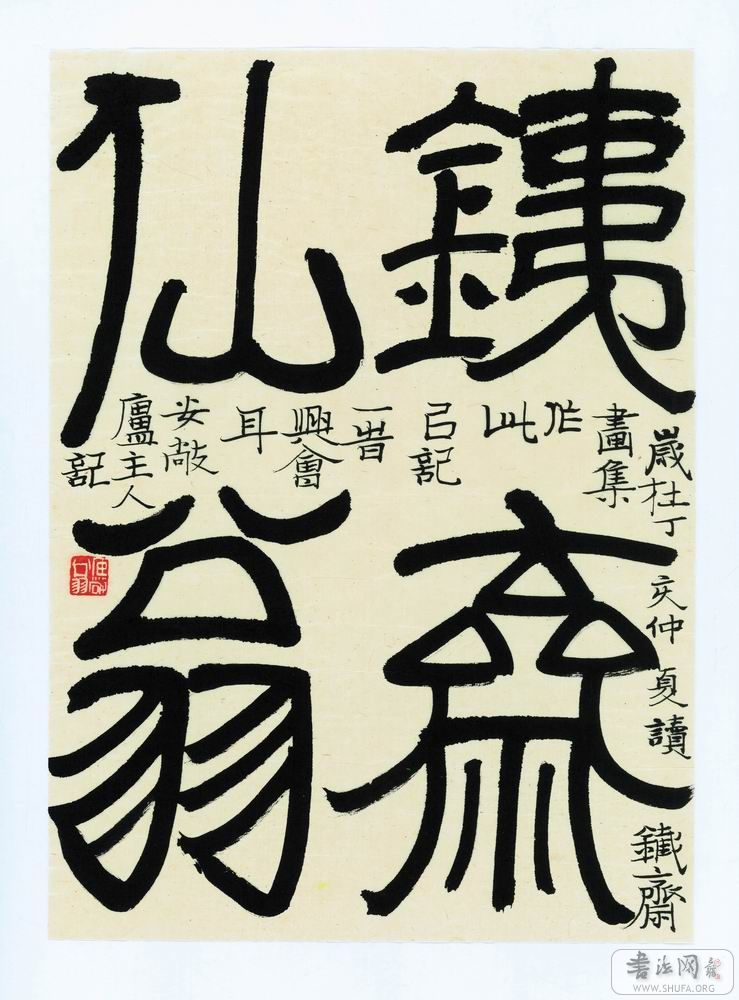 銕齋
仙翁
歲在丁亥仲夏讀鐵齋
畫集
作
此
以記
一旹
興會
耳
安敲
廬主人
記
书法网
WWW.SHUFA.ORG